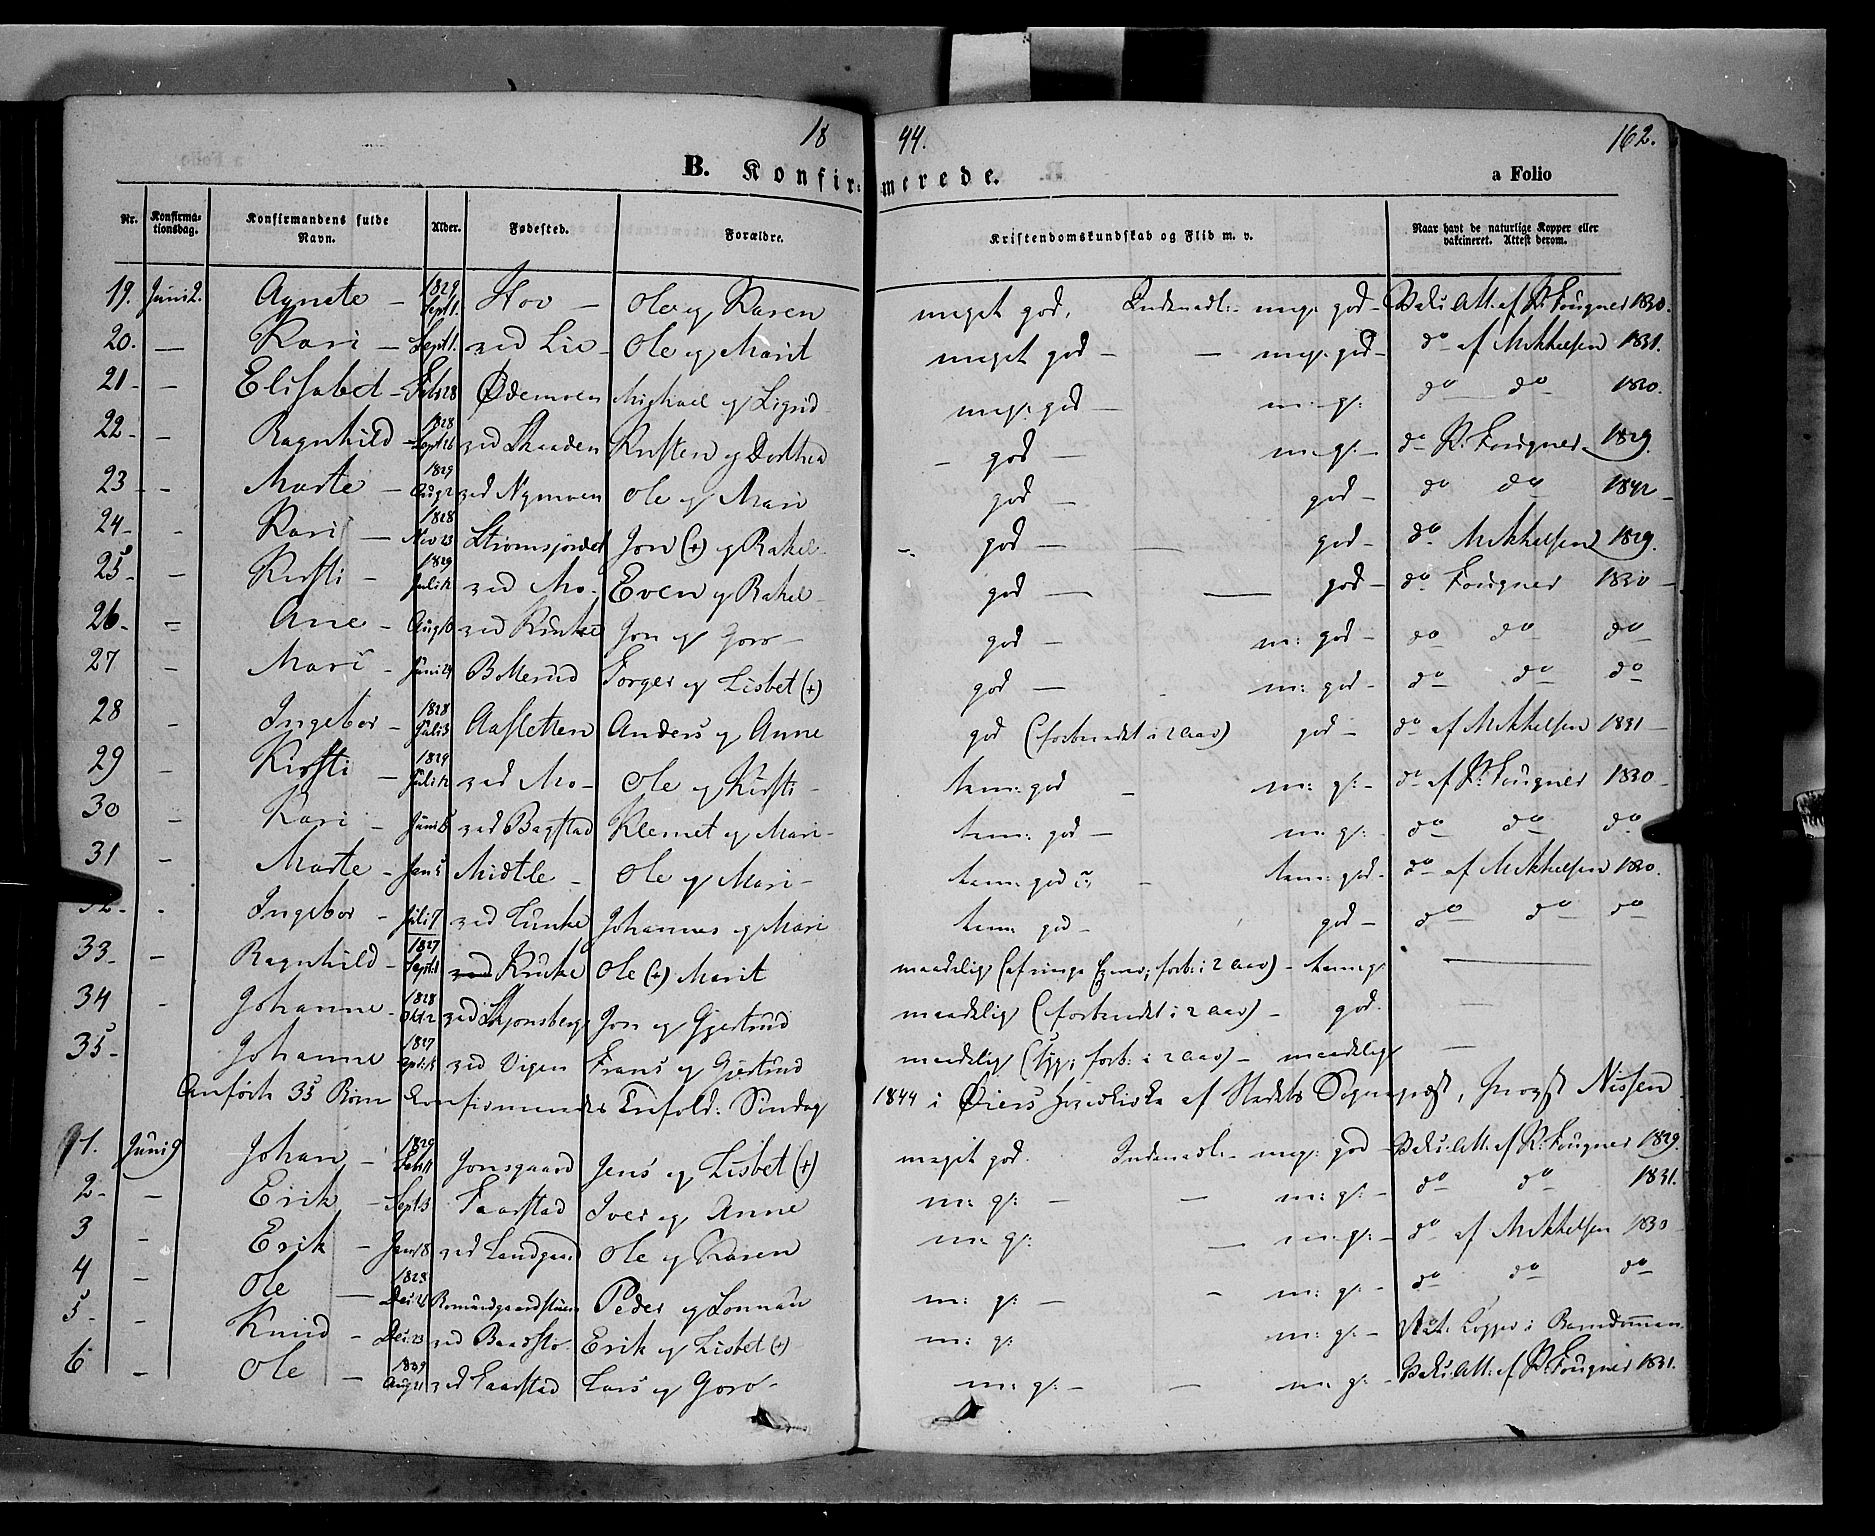 18 44. 162.
B. Konfirmerede. a Folio
Nr. Konfirmationsdag. Konfirmandens fulde Navn. Alder. Fødested. Forældre. Kristendomskundskab og Flid m. v. Naar havt de naturlige Kopper eller vaksineret. Attest derom.
19. Juni 2. Agnete - 1829 Sept 1. Hov - Ole og Karen meget god, Indenadl:- meg: god - Vaks: Att: af P: Fougner 1830.
20. - Kari - Sept 1. ved Lie - Ole og Marit meget god - - meg: god - do af Mikkelsen 1831.
21 - - Elisabet - Febr 28 Ødemoen Michael og Sigrid meg: god - m: g: do do 1830.
22 - - Ragnhild - 1828 Sept 16 ved Skaaden Kristen og Dorthea - god - m: g: - do P: Fougner 1829.
23 - - Marte - 1829 Aug 2 ved Nymoen Ole og Mari god - god - do do 1842 -
24 - - Kari - 1828 Nov 23 Strømsjordet Jon (+) og Rakel - god - - god - do Mikkelsen 1829.
25 - - Kirsti - 1829 Juli 12 ved Mo - Even og Rakel - god - - god - do Fougner 1830 -
26 - - Ane - Aug 10 ved Jon og Goro - god - m: god - do do do
27 - Mari - Juni 24 Botterud Torger og Lisbet (+) god - - m: god - do do do
28 - Ingebor - 1828 Juli 3 Aasletten Anders og Anne god (forberedt i 2 Aar) god - do af Mikkelsen 1831 -
29 - Kirsti - 1829 Juli 12 ved Mo - Ole og Kirsti - tem: god - m: g: - do af P: Fougner 1830 -
30 - Kari - Juni 8 ved Bagstad Klemet og Mari - tem: god - m: g: do do do
31 - Marte - Jan 5 Midtle - Ole og Mari - tem: god - tem: god - do af Mikkelsen 1830.
32 - - Ingebor - Juli 7 ved Lunke Johannes og Mari tem: god - god - do do do
33 - - Ragnhild - 1827 Sept: 1 ved Ole (+) Marit maadelig (af ringe Evner, forb: i 2 Aar) - tem: g: -
34 - Johanne - 1828 Okt 12 ved Skjønsberg Jon og Gjertrud maadelig (forberedt i 2 Aar) - god. -
35 - Johanne 1827 April ved Vigen Frans og Gjertrud maadelig (syg; forb: i 2 Aar) - maadelig -
Anførte 35 Børn Konfirmeredes Trefold: Søndag 1844 i Øiers Hovedkirke af Stedets Sognepræst, Provst Nissen
1. Juni 9 Johan - 1829 Febr 11 Jonsgaard Jens og Lisbet (+) meget god. Indenadl: - meg: god - Vaks: Att: af P: Fougner 1829.
2 - - Erik - Sept 3 Faarstad Iver og Anne m: g: - - m: g: - do do 1831.
3 - Erik - Jan 18 ved Landgaard Ole og Karen m: g: - m: g: - do af Mikkelsen 1830 -
4 - Ole - 1828 Dec: 26 Romundgaardstuen Peder og m: g: - - m: g: - do do do
5 - - Knud - Dec: 23 ved Baadsto - Erik og Lisbet (+) m: g: m: g: - Nat: Kopper i Barndommen
6 - Ole - 1829 Aug 21 ved Faarstad Lars og Goro - m: g: - - m: g: - Vaks: Att: af P: Fougner 1831.